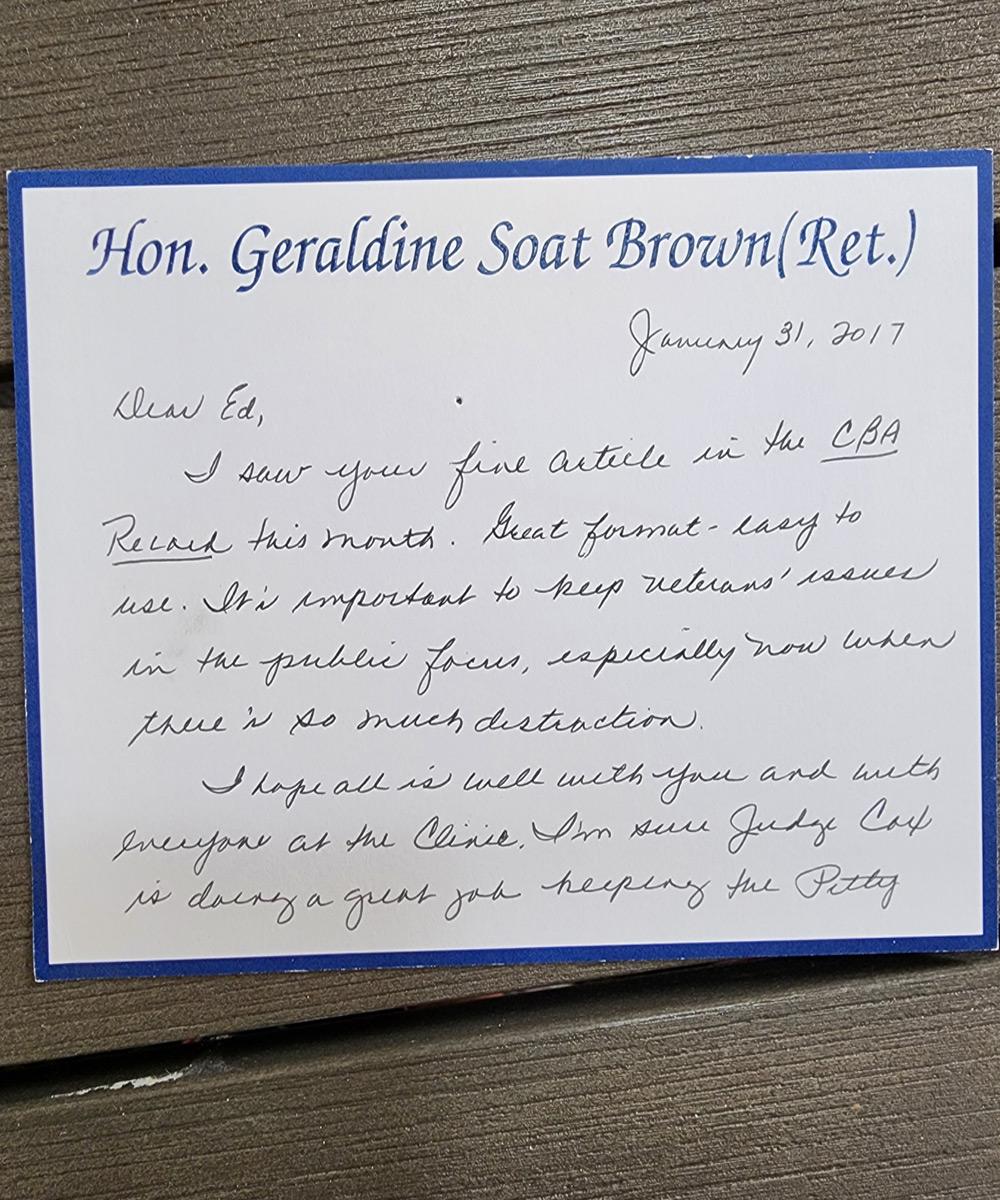 Hon. Geraldine Soat Brown(Ret.)
January 31, 2017
Dear Ed,
I saw your fine article in the CBA
Record this month. Great format - easy to
use. It's important to keep veterans' issues
in the public focus, especially now when
there's so much distraction.
I hope all is well with you and with
everyone at the Clinic. I'm sure Judge Cox
is doing a great job keeping the Petty